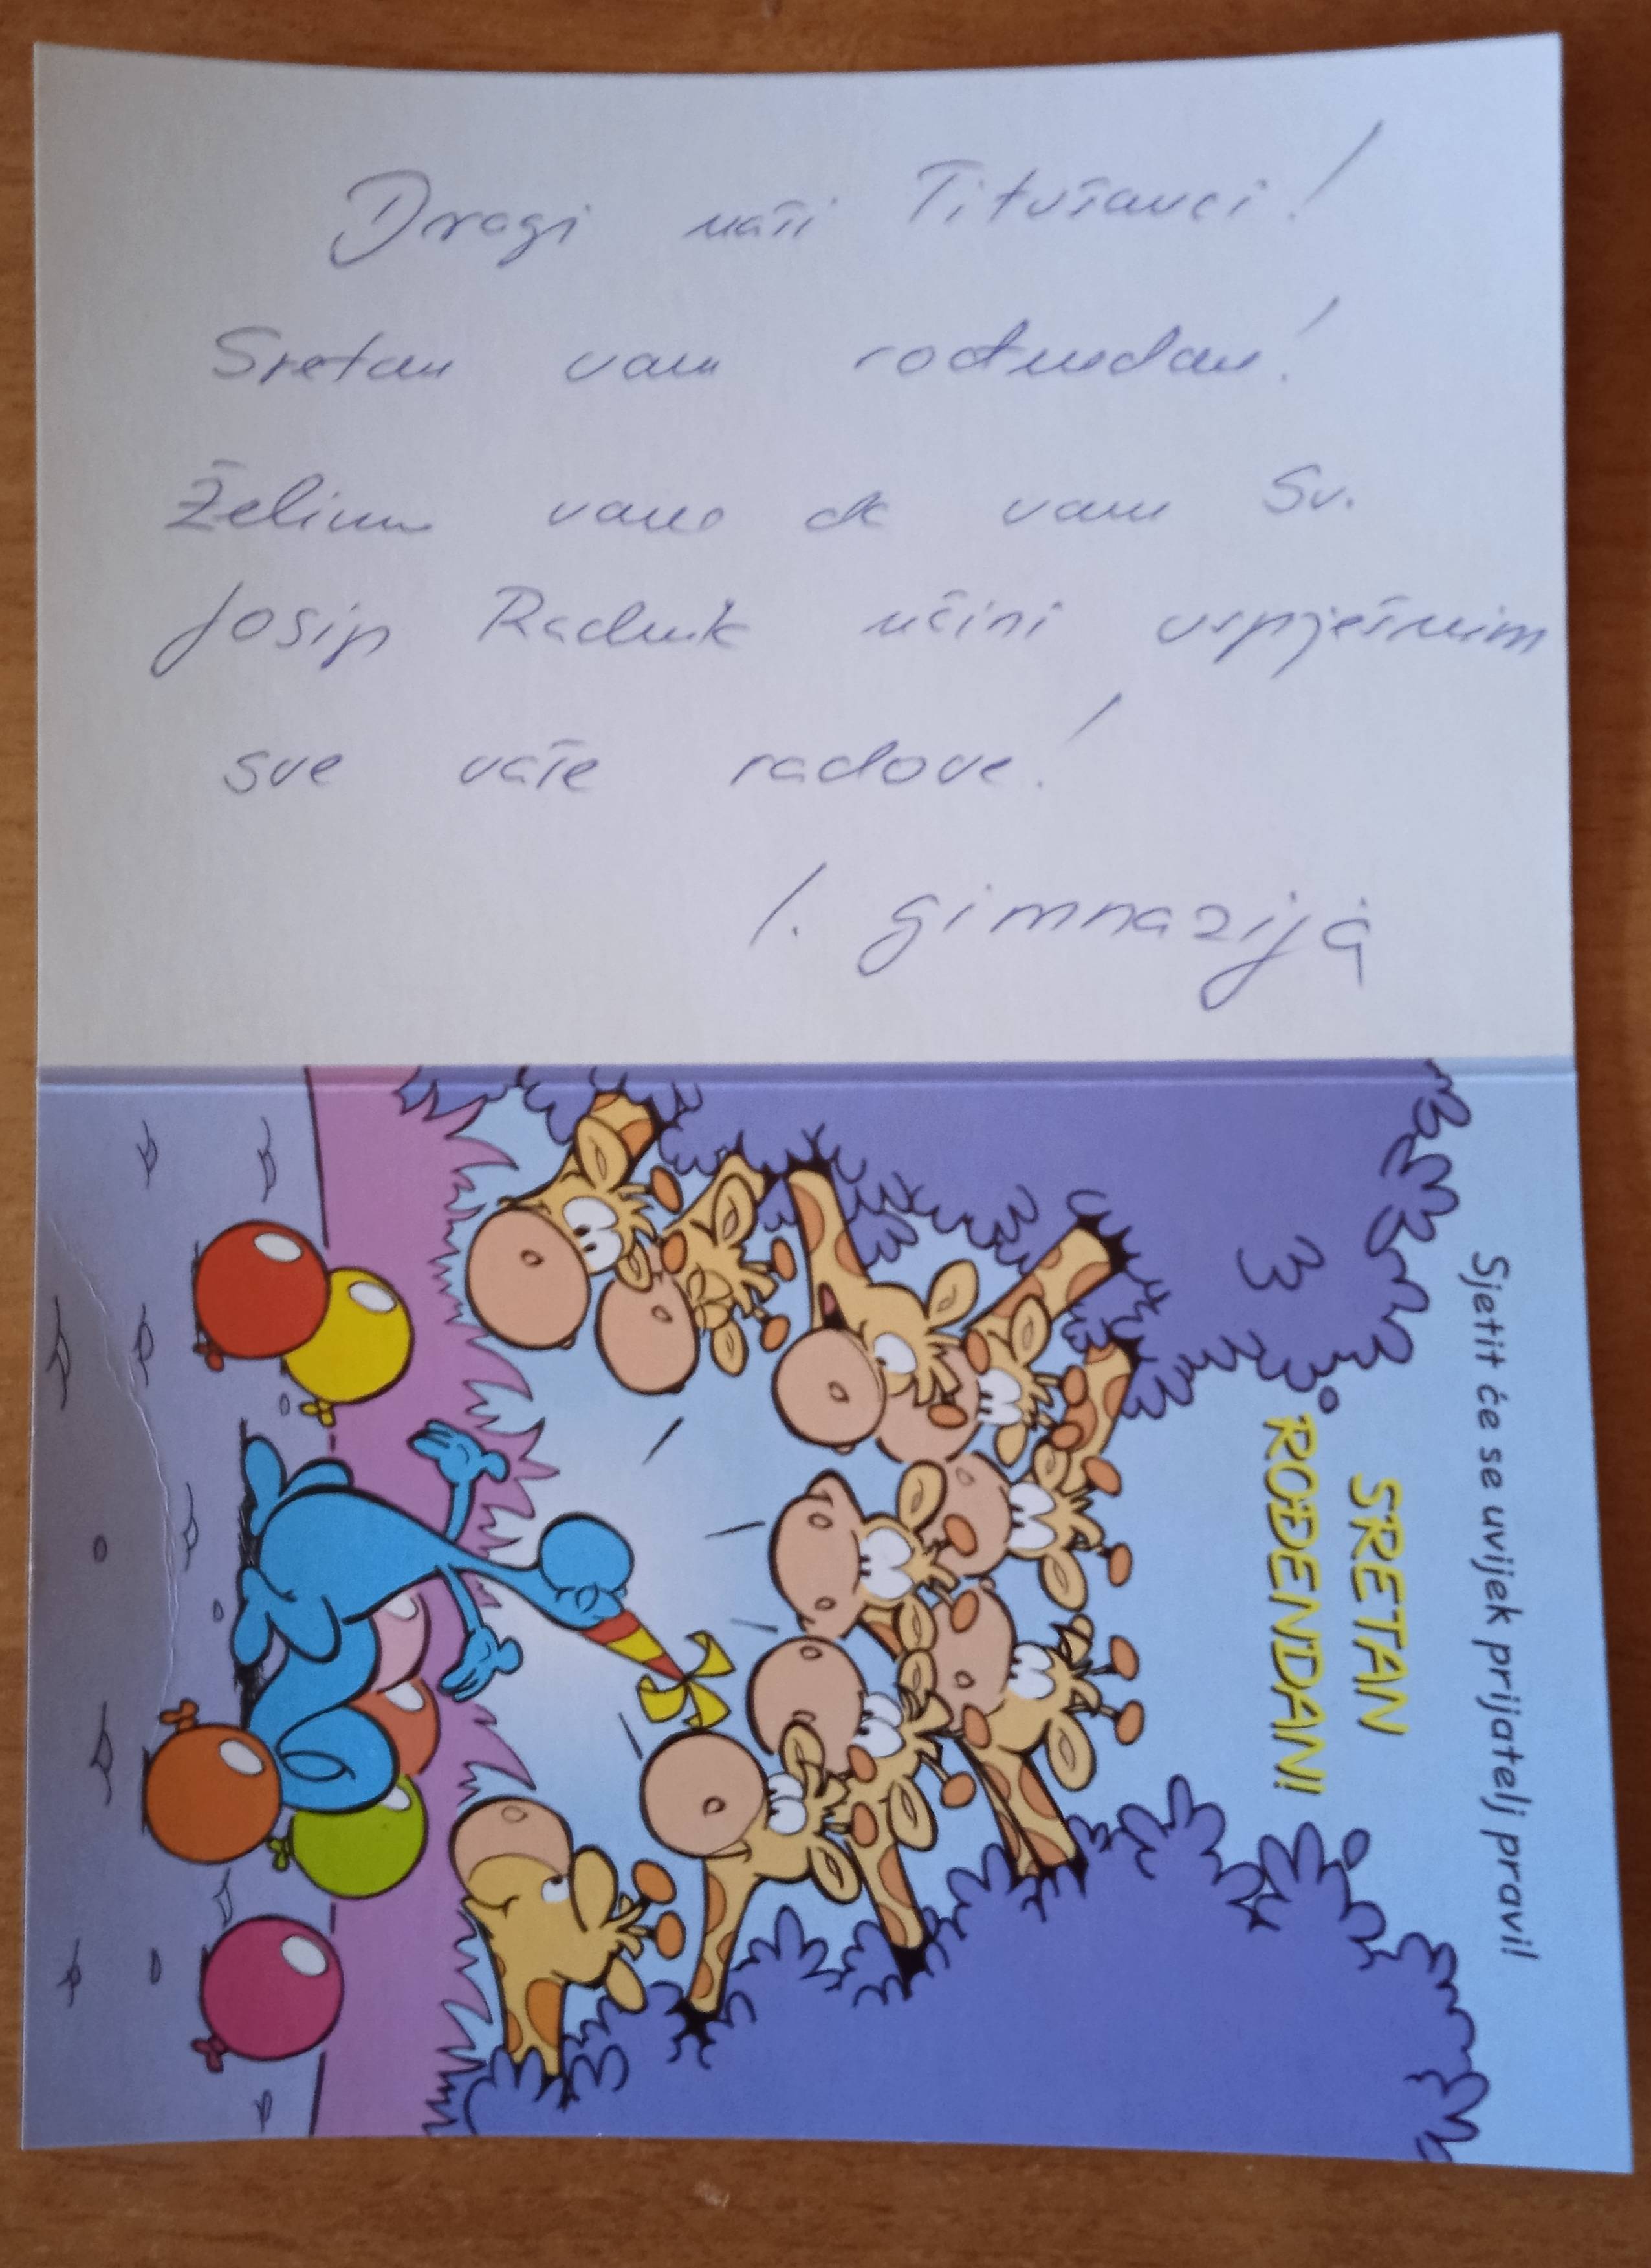 Dragi naši Titušanci!
Sretan vam rođendan!
Želimo vam da vam Sv.
Josip Radnik učini uspješnim
sve vaše radove!
1. gimnazija
Sjetit će se uvijek prijatelj pravi!
SRETAN
ROĐENDAN!